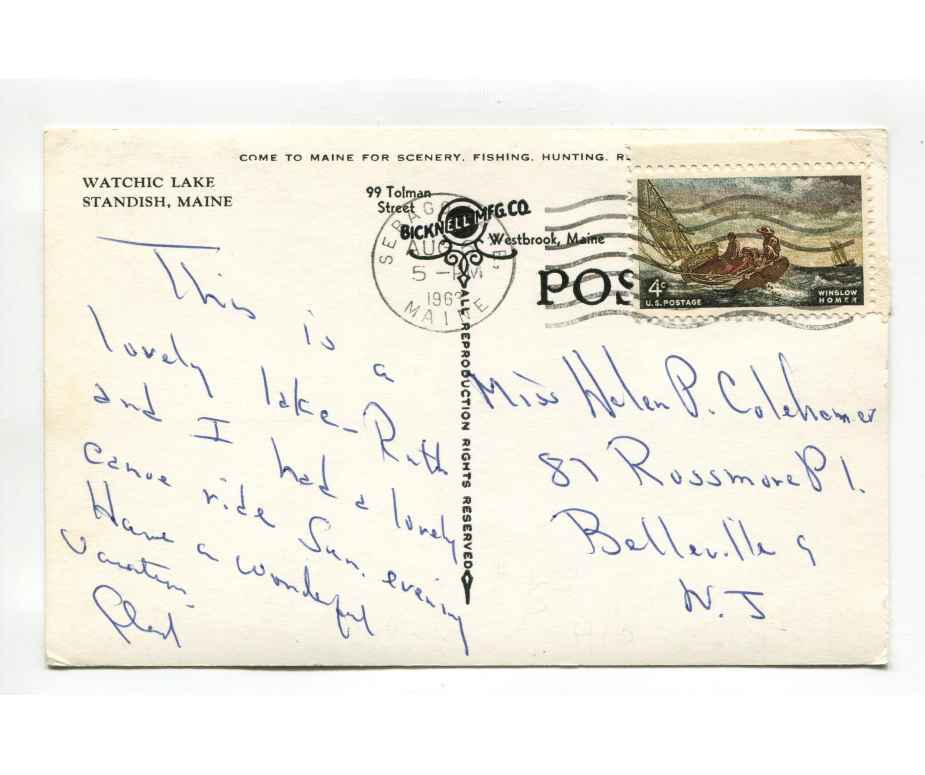 COME TO MAINE FOR SCENERY, FISHING, HUNTING.
WATCHIC LAKE
STANDISH, MAINE
99 Tolman
Street
BICKNELL MFG. CO
Westbrook, Maine
AUG
5 - PM
196
MAINE
POS
4c
U.S. POSTAGE
WINSLOW
HOMER
ALL REPRODUCTION RIGHTS RESERVED
This
is a
lovely lake - Ruth
and I had a lovely
canoe ride Sun. evening
Have a wonderful
vacation.
Miss Helen P. Colehamer
87 Rossmore Pl.
Belleville 9
N. J